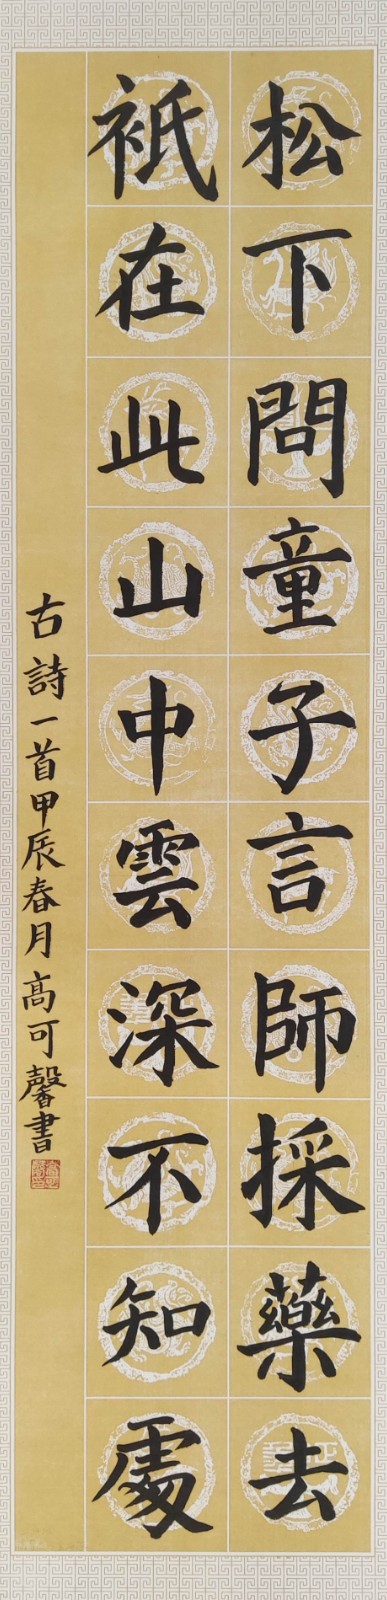 松下問童子言師採藥去
衹在此山中雲深不知處
古詩一首甲辰春月高可馨書